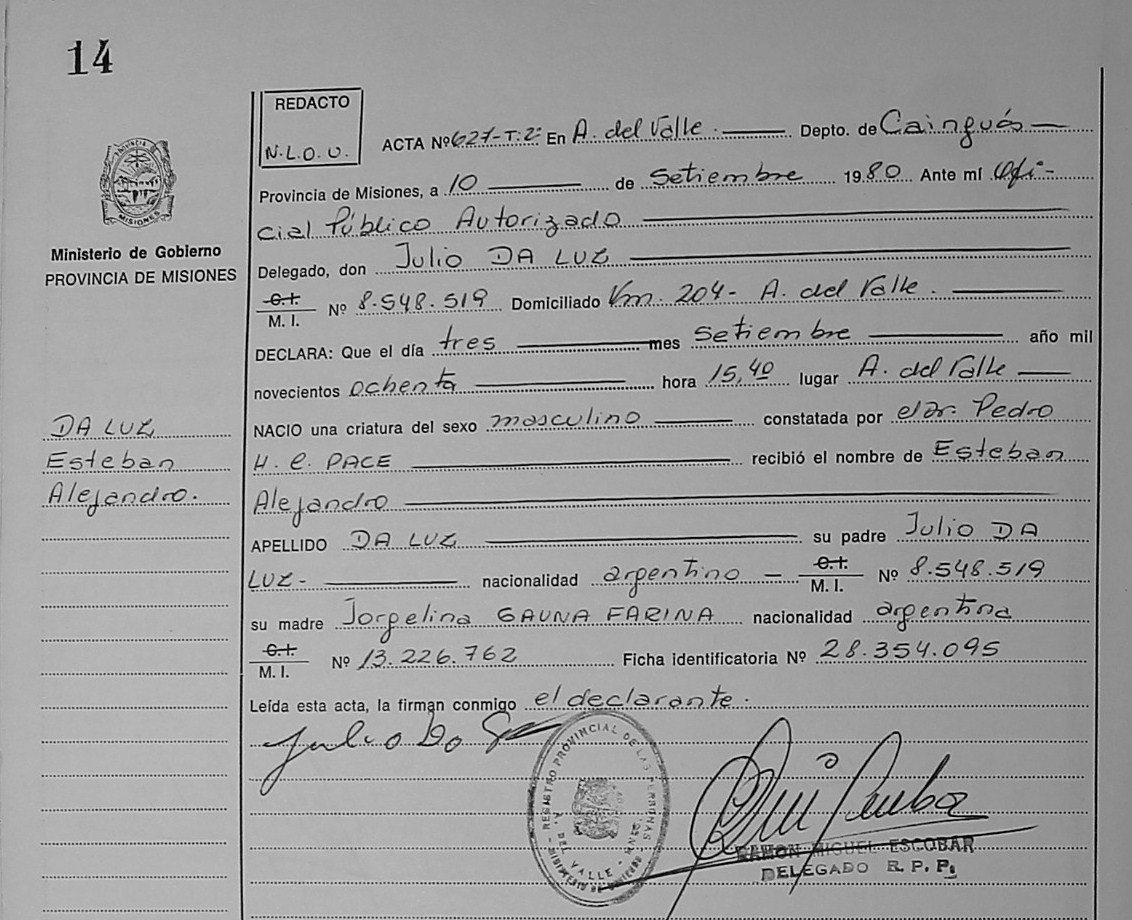 14
REDACTO
N.L.O.U.
ACTA Nº 627-T.2º En A. del Valle. Depto. de Cainguás
Provincia de Misiones, a 10 de Setiembre 1980 Ante mí Ofi-
cial Público Autorizado
Delegado, don Julio DA LUZ
C.I.
M. I. Nº 8.548.519 Domiciliado Km. 204- A. del Valle.
DECLARA: Que el día tres mes Setiembre año mil
novecientos ochenta hora 15,40 lugar A. del Valle
NACIO una criatura del sexo masculino constatada por el dr. Pedro
H. C. PACE recibió el nombre de Esteban
Alejandro
APELLIDO DA LUZ su padre Julio DA
LUZ- nacionalidad argentino C.I.
M. I. Nº 8.548.519
su madre Jorgelina GAUNA FARINA nacionalidad argentina
C.I.
M. I. Nº 13.226.762 Ficha identificatoria Nº 28.354.095
Leída esta acta, la firman conmigo el declarante.
Julio Da
PROVINCIA DE
MISIONES
Ministerio de Gobierno
PROVINCIA DE MISIONES
DA LUZ
Esteban
Alejandro.
REGISTRO PROVINCIAL DE LAS PERSONAS
A. DEL VALLE - MNES.
RAMON MIGUEL ESCOBAR
DELEGADO R. P. P.